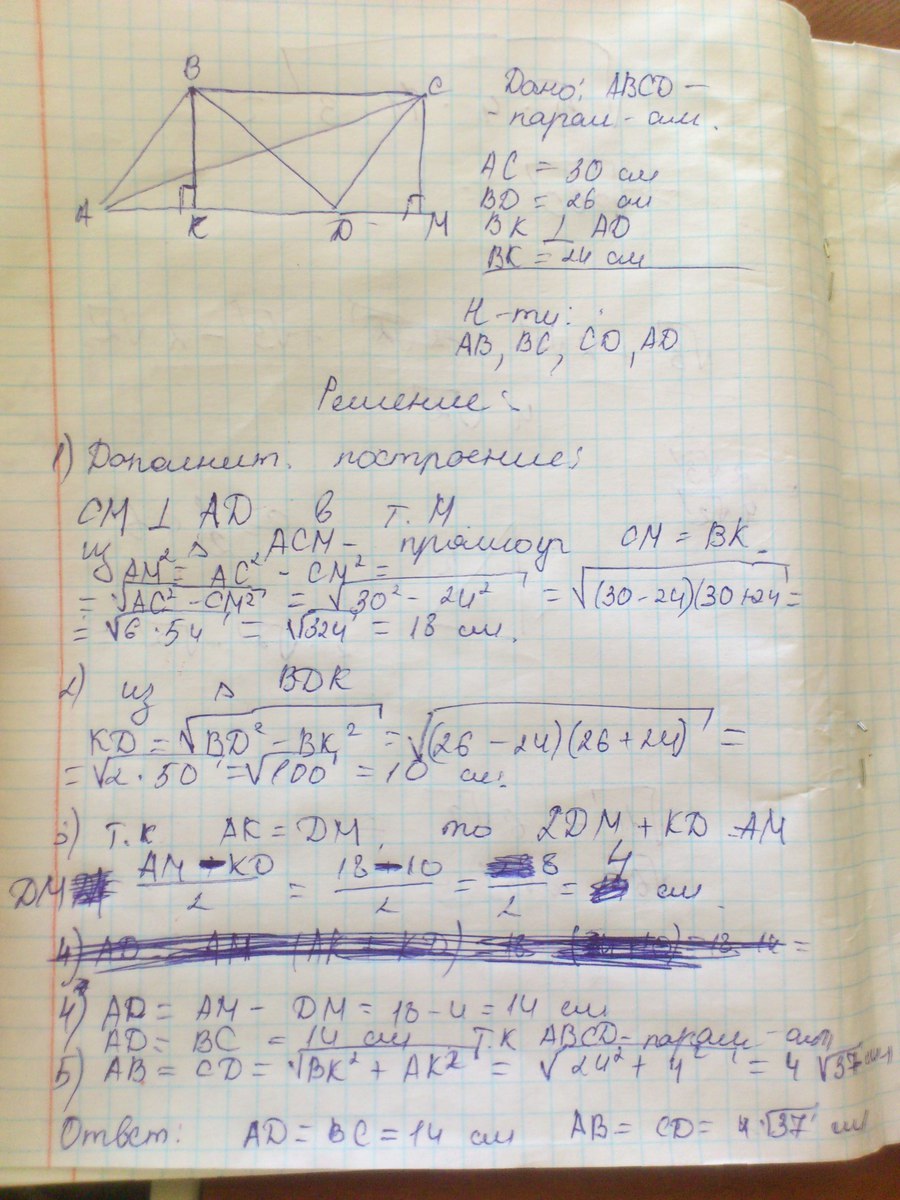 B
C
A
K
D
M
Дано: ABCD –
- парал - амм.
AC = 30 см
BD = 26 см
BK ⊥ AD
BK = 24 см
Н-ти:
AB, BC, CD, AD
Решение:
1) Дополнит. построение:
CM ⊥ AD в т. M
из Δ ACM – прямоуг CM = BK.
AM² = AC² - CM² =
= √AC² - CM² = √30² - 24² = √(30-24)(30+24 =
= √6·54 = √324 = 18 см.
2) из Δ BDK
KD = √BD² - BK² = √(26-24)(26+24) =
= √2·50 = √100 = 10 см.
3) т.к AK = DM, то 2DM + KD = AM
DM AM - KD / 2 = 18 - 10 / 2 = 8 / 2 = 4 см.
4) AD = AM - DM = 18 - 4 = 14 см
AD = BC = 14 см т.к ABCD - парал - амм
5) AB = CD = √BK² + AK² = √24² + 4² = 4 √37 см
Ответ: AD = BC = 14 см AB = CD = 4√37 см